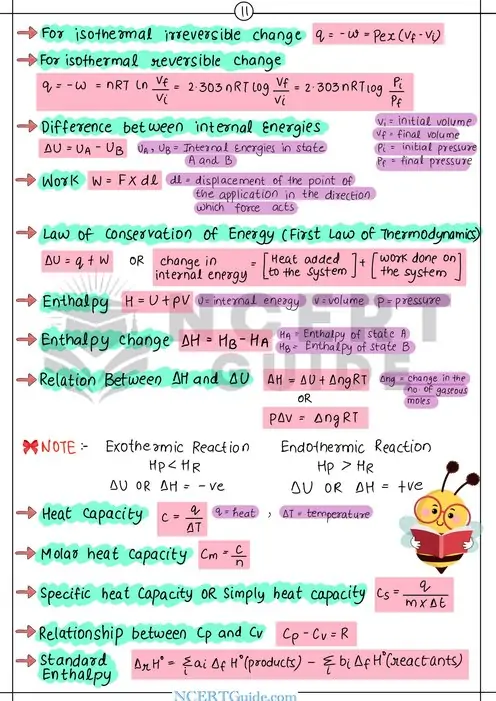 11
→ For isothermal irreversible change q = -w = Pex (Vf - Vi)
→ For isothermal reversible change
q = -w = nRT ln Vf/Vi = 2.303 nRT log Vf/Vi = 2.303 nRT log Pi/Pf
→ Difference between internal Energies
ΔU = UA - UB UA, UB = Internal Energies in state
A and B
Vi = initial volume
Vf = final volume
Pi = initial pressure
Pf = final pressure
→ Work W = F x dl dl = displacement of the point of
the application in the direction
which force acts
→ Law of Conservation of Energy (First Law of Thermodynamics)
ΔU = q + W OR change in internal energy = [Heat added to the system] + [work done on the system]
→ Enthalpy H = U + PV U = internal energy V = volume P = pressure
→ Enthalpy change ΔH = HB - HA HA = Enthalpy of state A
HB = Enthalpy of state B
→ Relation Between ΔH and ΔU ΔH = ΔU + ΔngRT Δng = change in the
no. of gaseous
moles
OR
PΔV = ΔngRT
NOTE :- Exothermic Reaction Endothermic Reaction
HP < HR HP > HR
ΔU OR ΔH = -ve ΔU OR ΔH = +ve
→ Heat Capacity C = q/ΔT q = heat , ΔT = temperature
→ Molar heat capacity Cm = C/n
→ Specific heat Capacity OR Simply heat capacity Cs = q/m x Δt
→ Relationship between Cp and Cv Cp - Cv = R
→ Standard
Enthalpy ΔrH° = Σi ai Δf H°(products) - Σi bi Δf H°(reactants)
NCERT
GUIDE
NCERTGuide.com